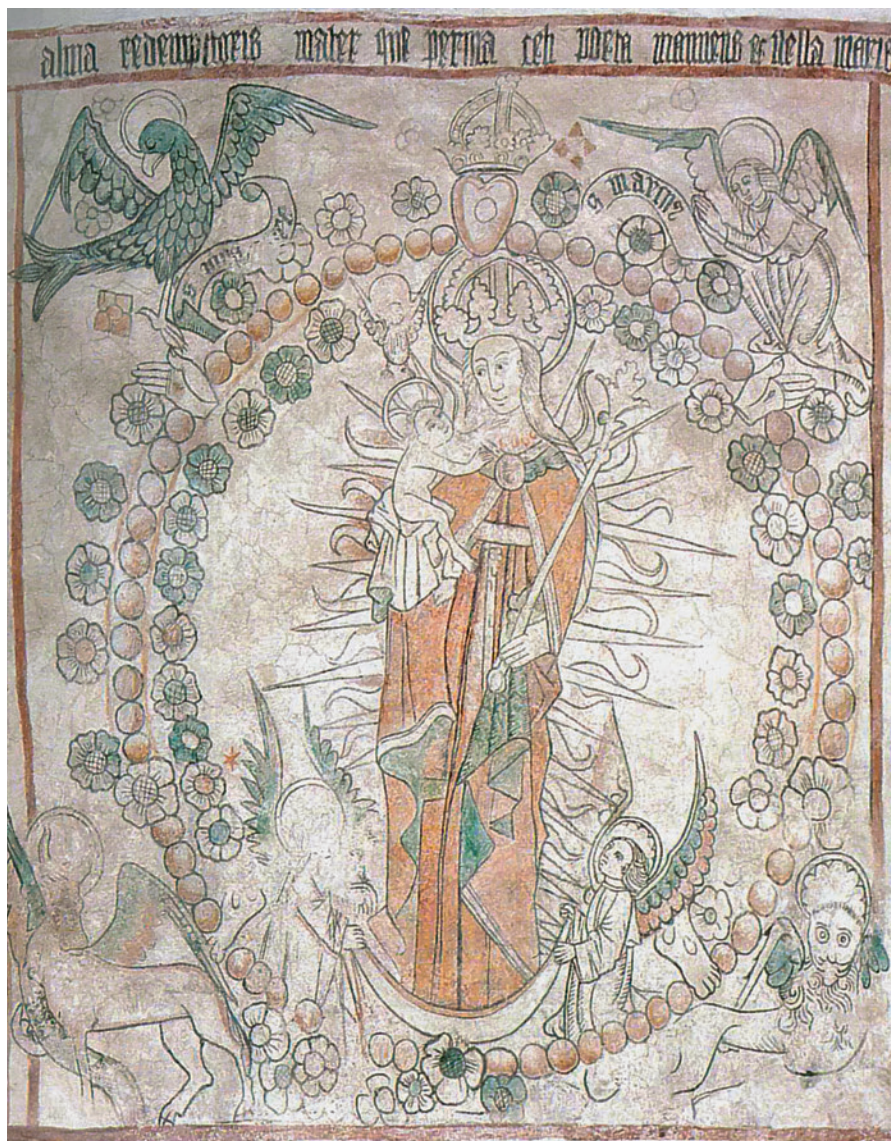 alma redemptoris mater que pervia celi porta mannens et stella maris